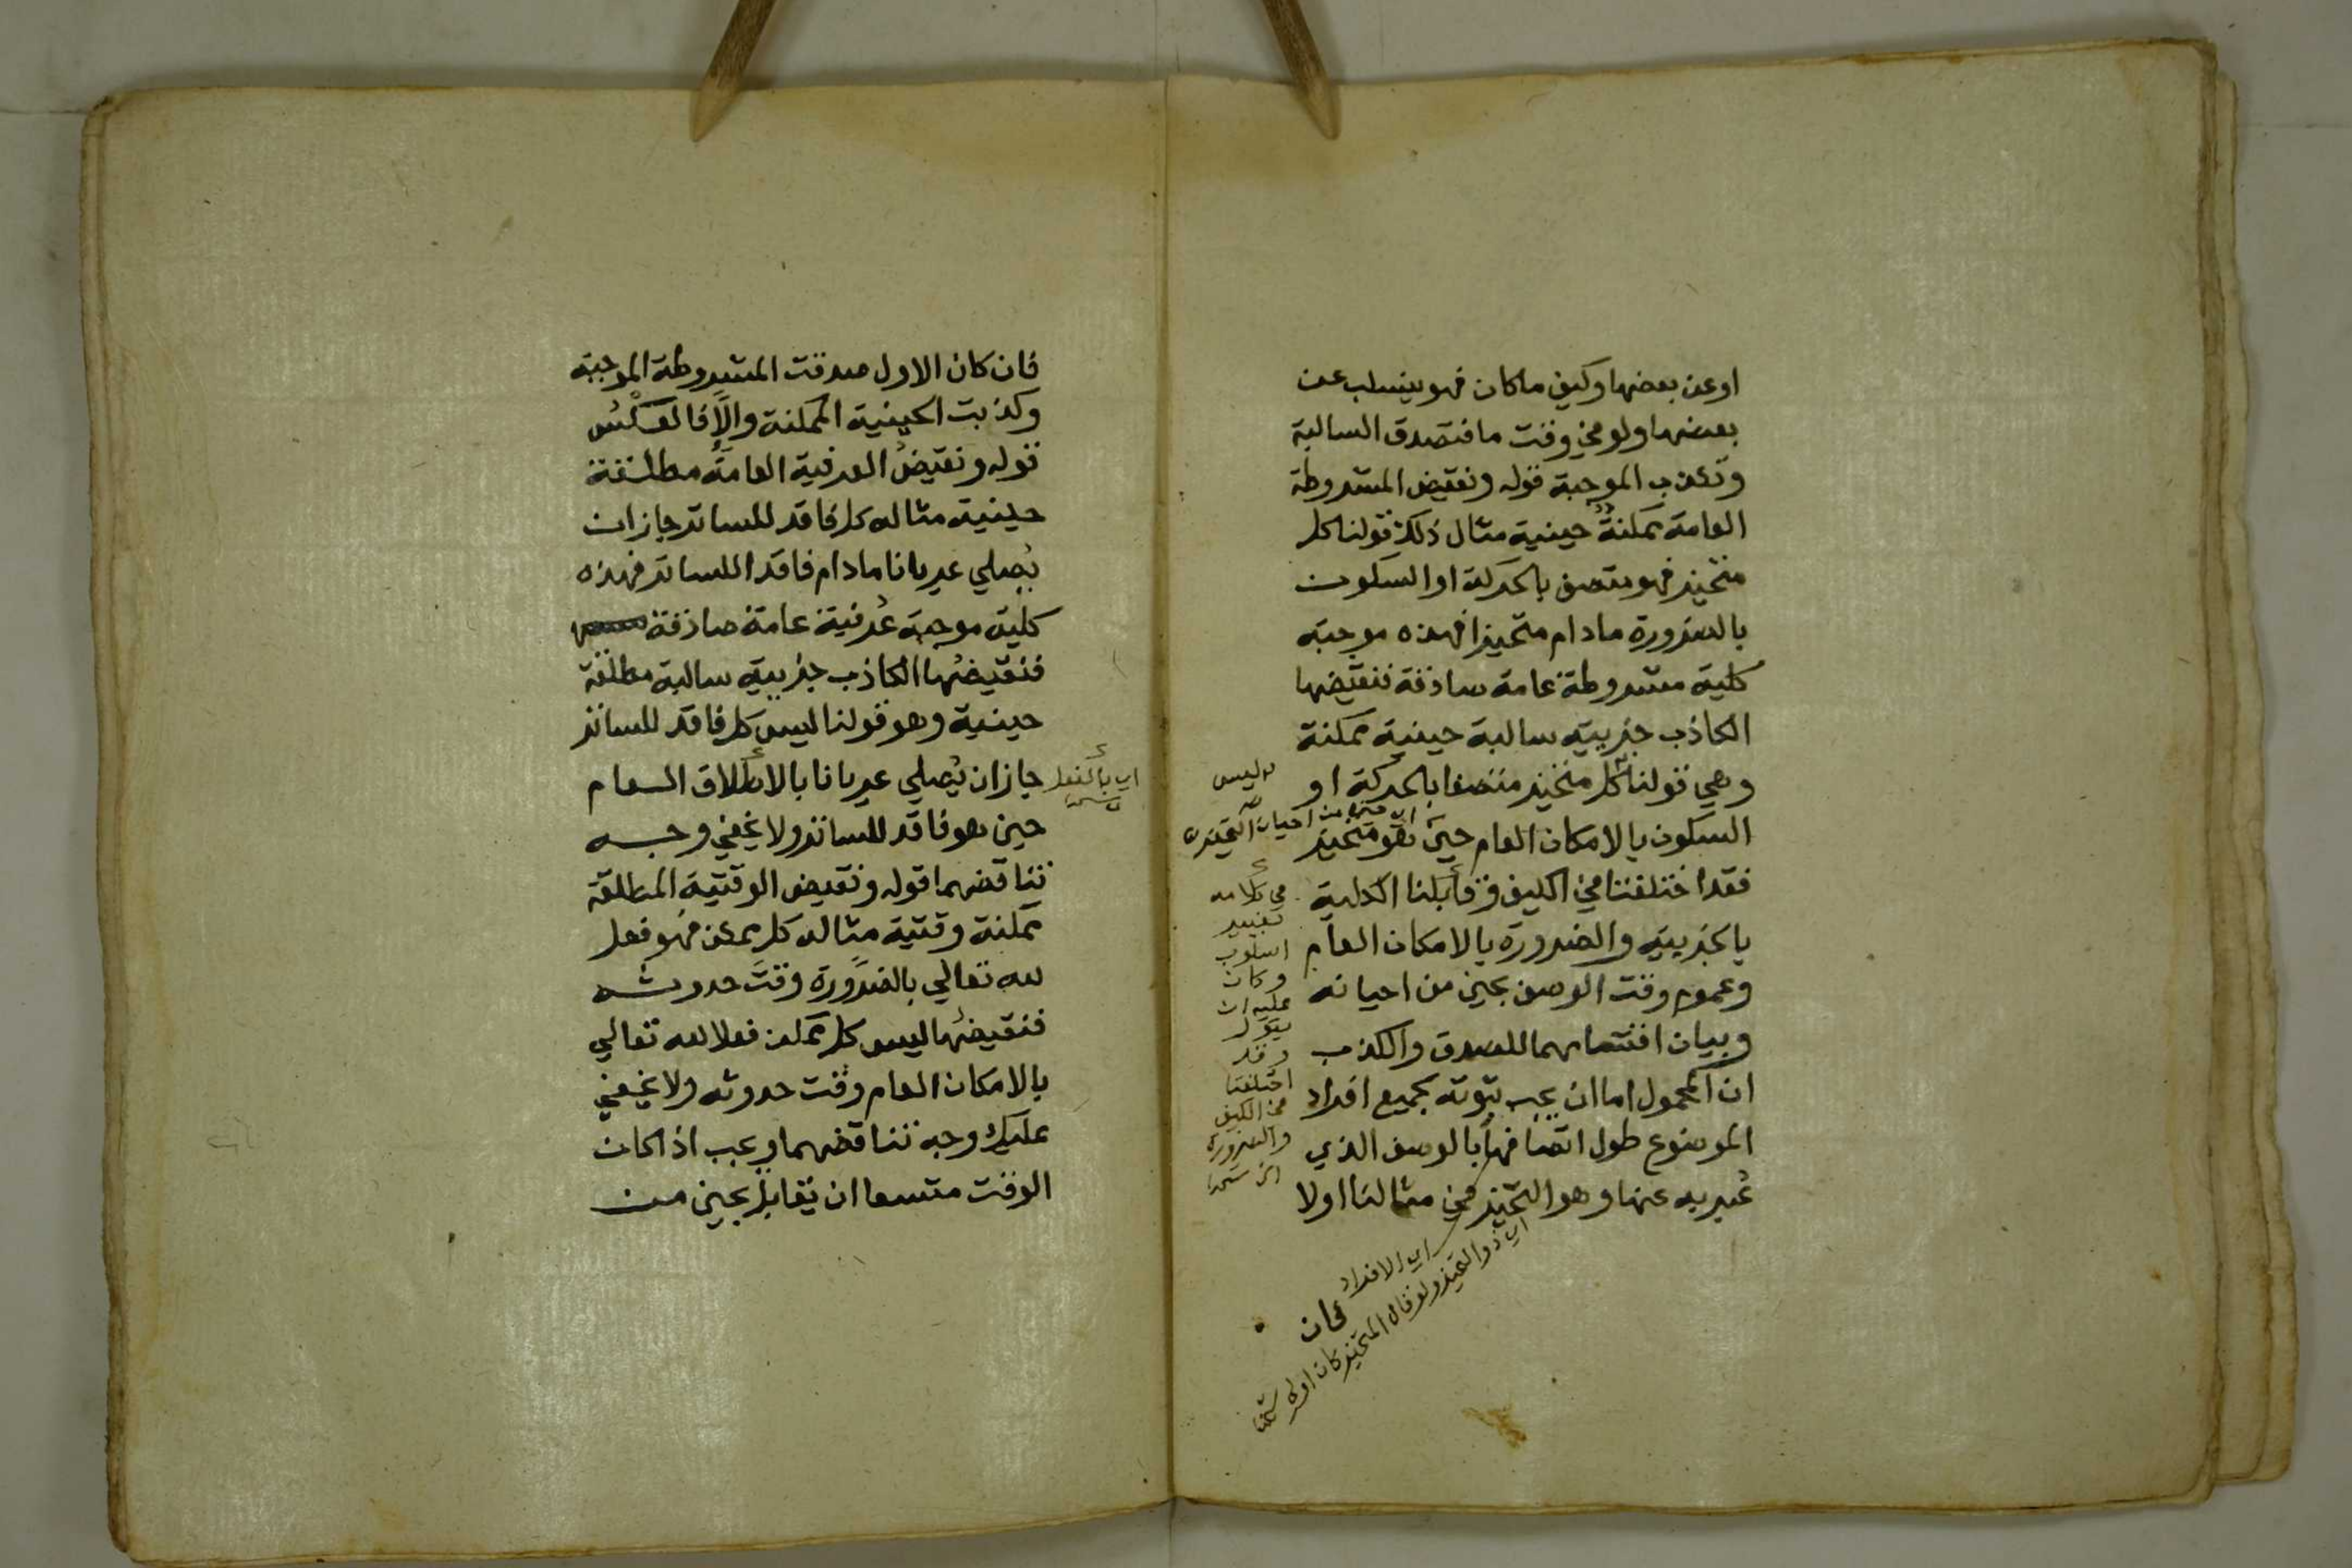 او عن بعضها وكيف ماكان فهو ينسلب عن
بعضها ولو في وقت ما فتصدق السالبة
وتكذب الموجبة قوله ونقيض المشروطة
العامة ممكنة حينية مثال ذلك قولنا كل
متحيز فهو متصف بالحركة او السكون
بالضرورة مادام متحيزا فهذه موجبة
كلية مشروطة عامة صادقة فنقيضها
الكاذب جزيية سالبة حينية ممكنة
وهي قولنا كل متحيز متصفا بالحركة او
ليس
السكون بالامكان العام حين هو متحيز
اي من احيان التحيز
فقد اختلفتا في الكيف وقابلنا الكلية
بالجزيية والضرورة بالامكان العام
وعموم وقت الوصف بحين من احيانه
وبيان اقتسامهما للصدق والكذب
ان المحمول اما ان يجب ثبوته بجميع افراد
الموضوع طول اتصافها بالوصف الذي
عُبر به عنها وهو التحيز في مثالنا اولا
في كلامه
تغيير
اسلوب
وكان
عليه ان
يقول
وقد
اختلفتا
في الكيف
والضرورة
اي الافراد
اي ذو التحيز ولو قال المتحيز كان اولى
فان
فان كان الاول صدقت المشروطة الموجبة
وكذبت الحينية الممكنة والّا فالعكسُ
قوله ونقيضُ العرفية العامة مطلقة
حينية مثاله كل فاقد للساتر جاز ان
يُصلي عريانا مادام فاقد اللساتر فهذه
كلية موجبة عُرفية عامة صادقة
فنقيضُها الكاذب جزيية سالبة مطلقة
حينية وهو قولنا ليس كل فاقد للساتر
جاز ان يُصلي عريانا بالاطلاق العام
اي بالفعل
حين هو فاقد للساتر ولا يخفي وجه
تناقضهما قوله ونقيض الوقتية المطلقة
ممكنة وقتية مثاله كل ممكن فهو فعل
لله تعالي بالضرورة وقتَ حدوثه
فنقيضُها ليس كل ممكن فعلا لله تعالي
بالامكان العام وقت حدوثه ولا يخفي
عليك وجه تناقضهما ويجب اذا كان
الوقت متسعا ان يقابل بحين من